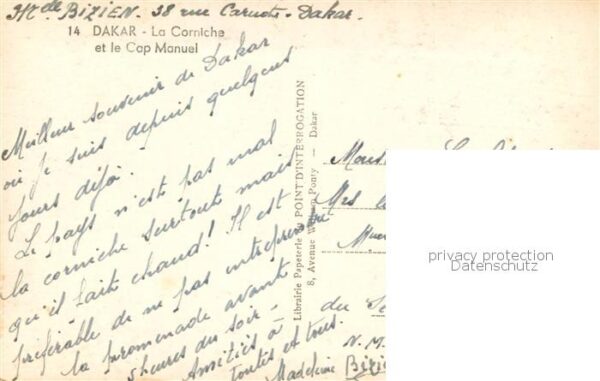 BIZIEN. 38 rue Carnot - Dakar.
14 DAKAR - La Corniche
et le Cap Manuel
Meilleur souvenir de Dakar
où je suis depuis quelques
jours déjà.
Le pays n'est pas mal
la corniche surtout mais
qu'il fait chaud! Il est
préférable de ne pas entreprendre
la promenade avant
5 heures du soir -
Amitiés à
toutes et tous.
Madeleine Bizie
Librairie Papeterie du POINT D'INTERROGATION
8, Avenue William Ponty — Dakar
Mous
Mrs
du Se
N. M.
privacy protection
Datenschutz